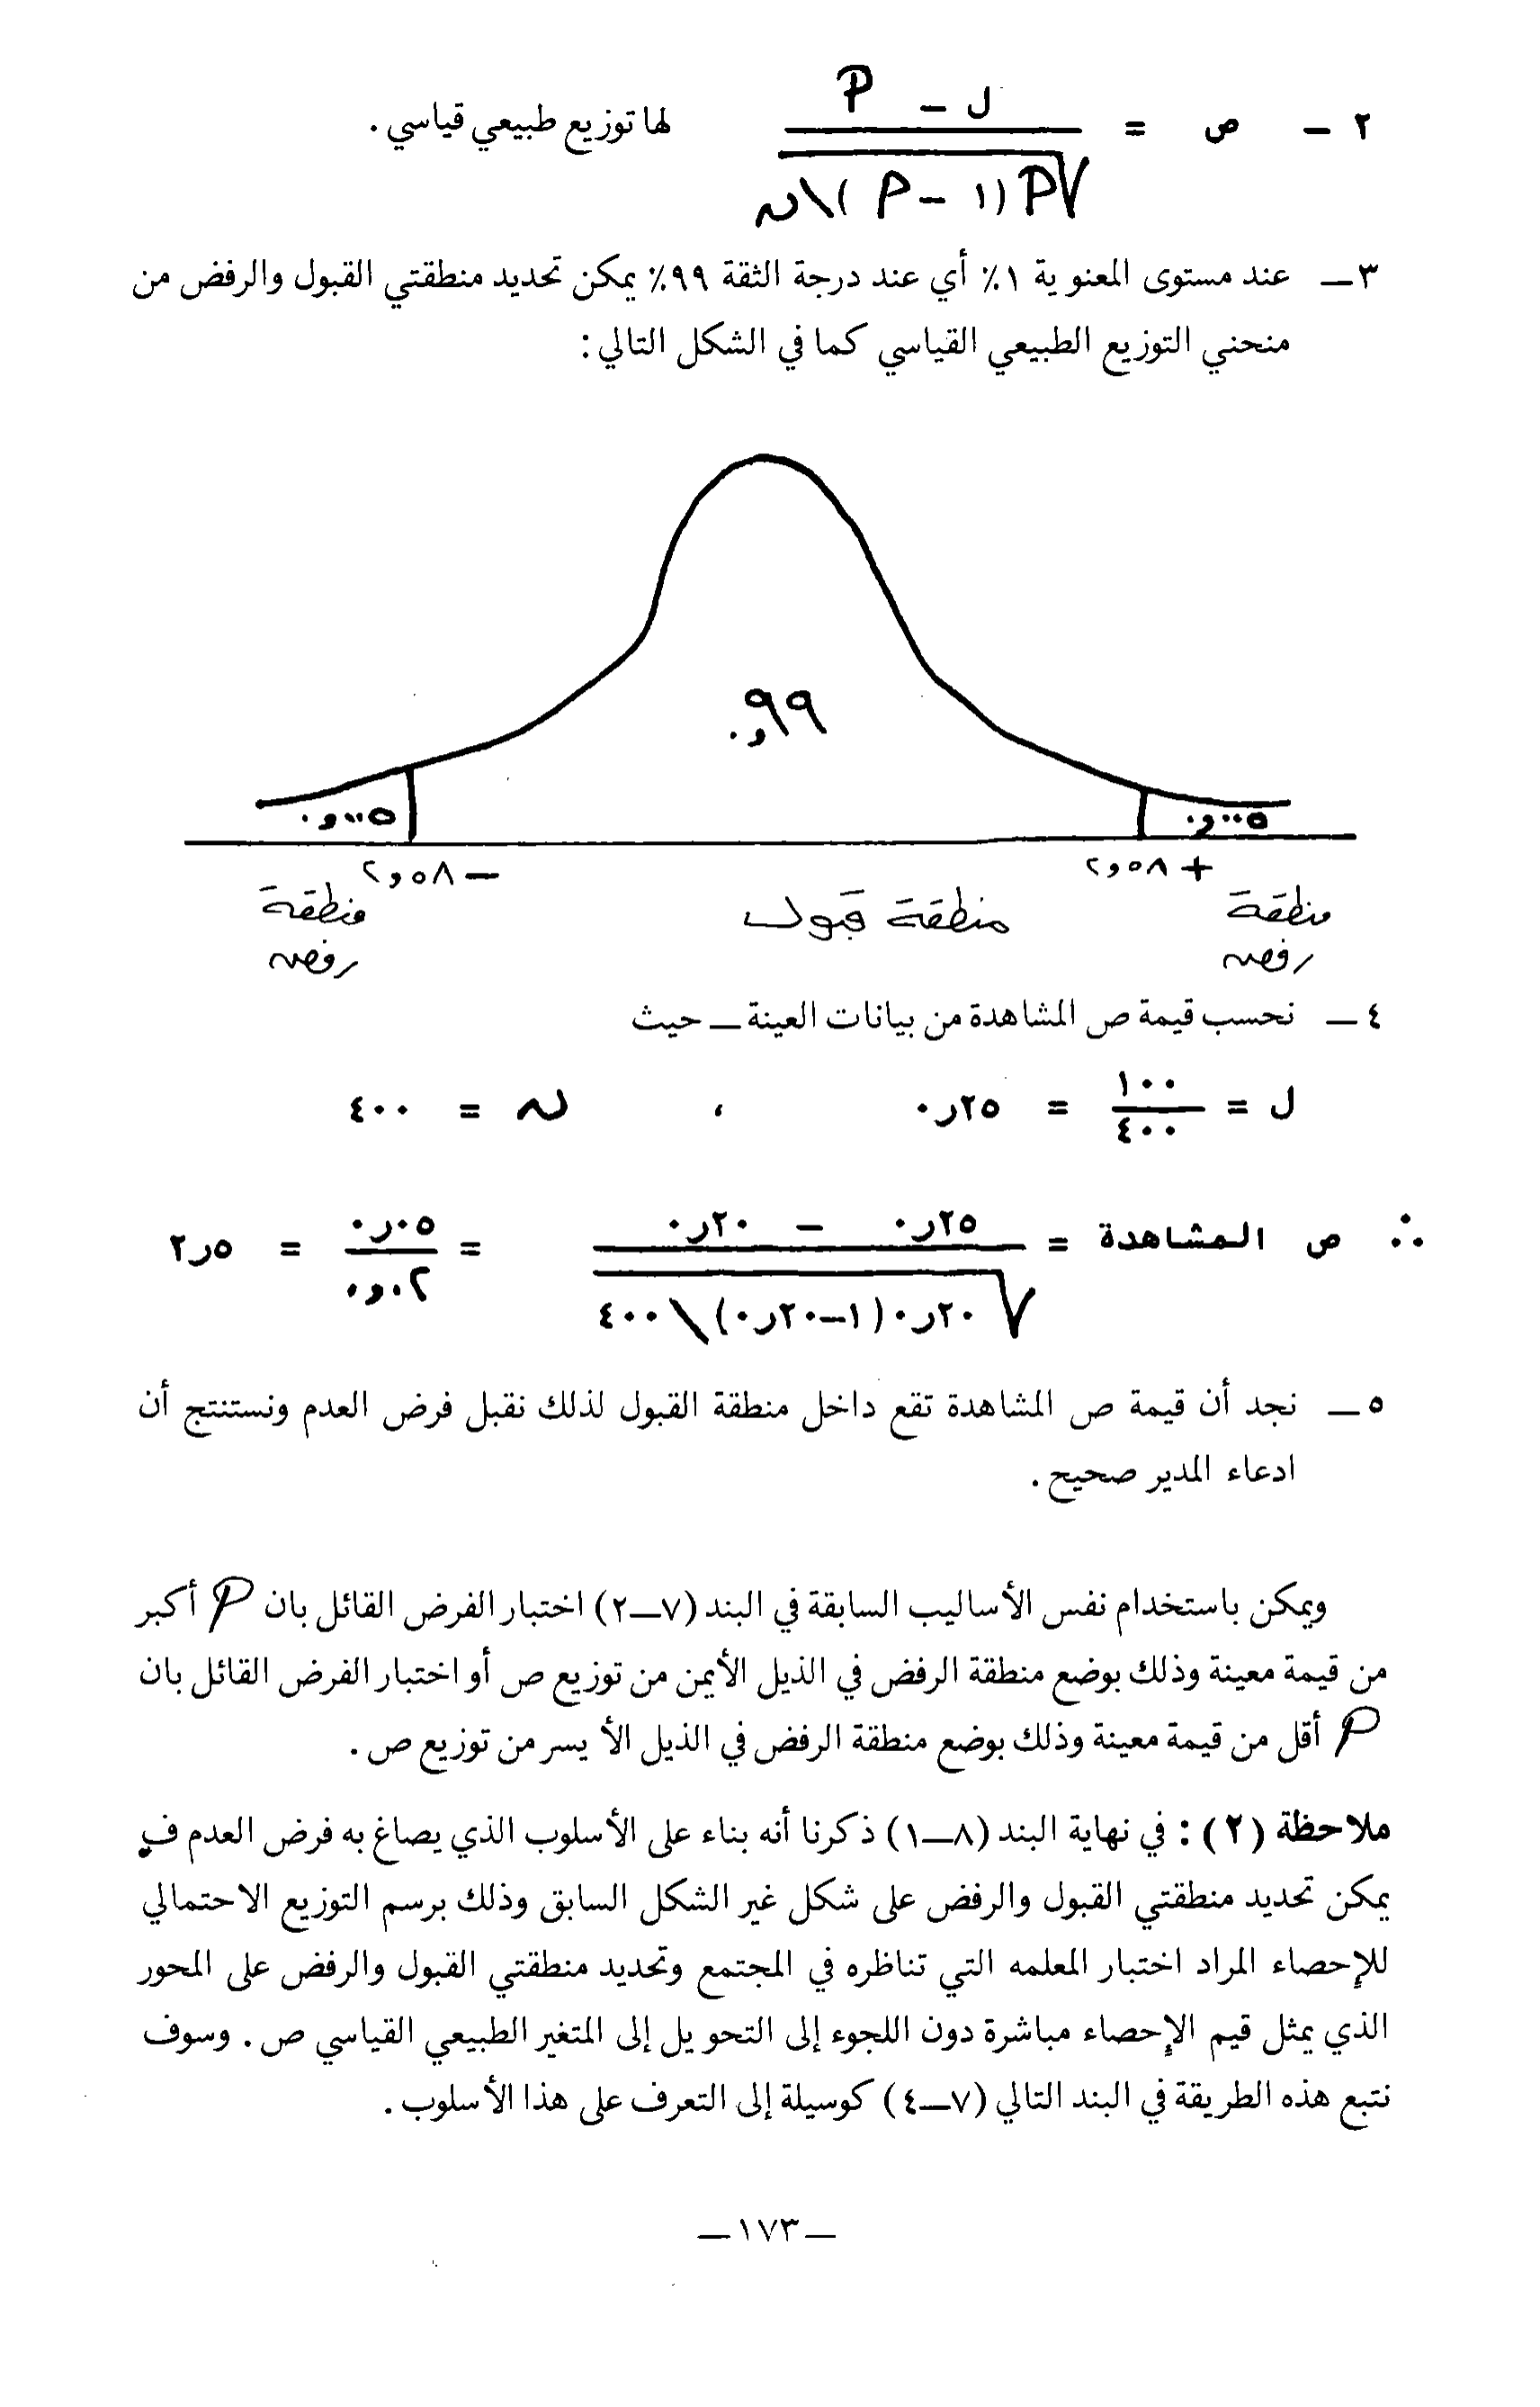 ٢ – ص = (ل – P) / √P(١ – P)\ن لها توزيع طبيعي قياسي .
٣ – عند مستوى المعنوية ١٪ أي عند درجة الثقة ٩٩٪ يمكن تحديد منطقتي القبول والرفض من
منحني التوزيع الطبيعي القياسي كما في الشكل التالي :
٠,٩٩
٠,٠٠٥
٠,٠٠٥
– ٢,٥٨
+ ٢,٥٨
منطقة رفض
منطقة قبول
منطقة رفض
٤ – نحسب قيمة ص المشاهدة من بيانات العينة – حيث
ل = ١٠٠ / ٤٠٠ = ٠ر٢٥ ، ن = ٤٠٠
∴ ص المشاهدة = (٠ر٢٥ – ٠ر٢٠) / √٠ر٢٠(١–٠ر٢٠)\٤٠٠ = ٠ر٠٥ / ٠,٠٢ = ٢ر٥
٥ – نجد أن قيمة ص المشاهدة تقع داخل منطقة القبول لذلك نقبل فرض العدم ونستنتج أن
ادعاء المدير صحيح .
ويمكن باستخدام نفس الأساليب السابقة في البند (٧–٢) اختبار الفرض القائل بان P أكبر
من قيمة معينة وذلك بوضع منطقة الرفض في الذيل الأيمن من توزيع ص أو اختبار الفرض القائل بان
P أقل من قيمة معينة وذلك بوضع منطقة الرفض في الذيل الأيسر من توزيع ص .
ملاحظة (٢) : في نهاية البند (٨–١) ذكرنا أنه بناء على الأسلوب الذي يصاغ به فرض العدم ف
يمكن تحديد منطقتي القبول والرفض على شكل غير الشكل السابق وذلك برسم التوزيع الاحتمالي
للإحصاء المراد اختبار المعلمه التي تناظره في المجتمع وتحديد منطقتي القبول والرفض على المحور
الذي يمثل قيم الإحصاء مباشرة دون اللجوء إلى التحويل إلى المتغير الطبيعي القياسي ص . وسوف
نتبع هذه الطريقة في البند التالي (٧–٤) كوسيلة إلى التعرف على هذا الأسلوب .
– ١٧٣ –